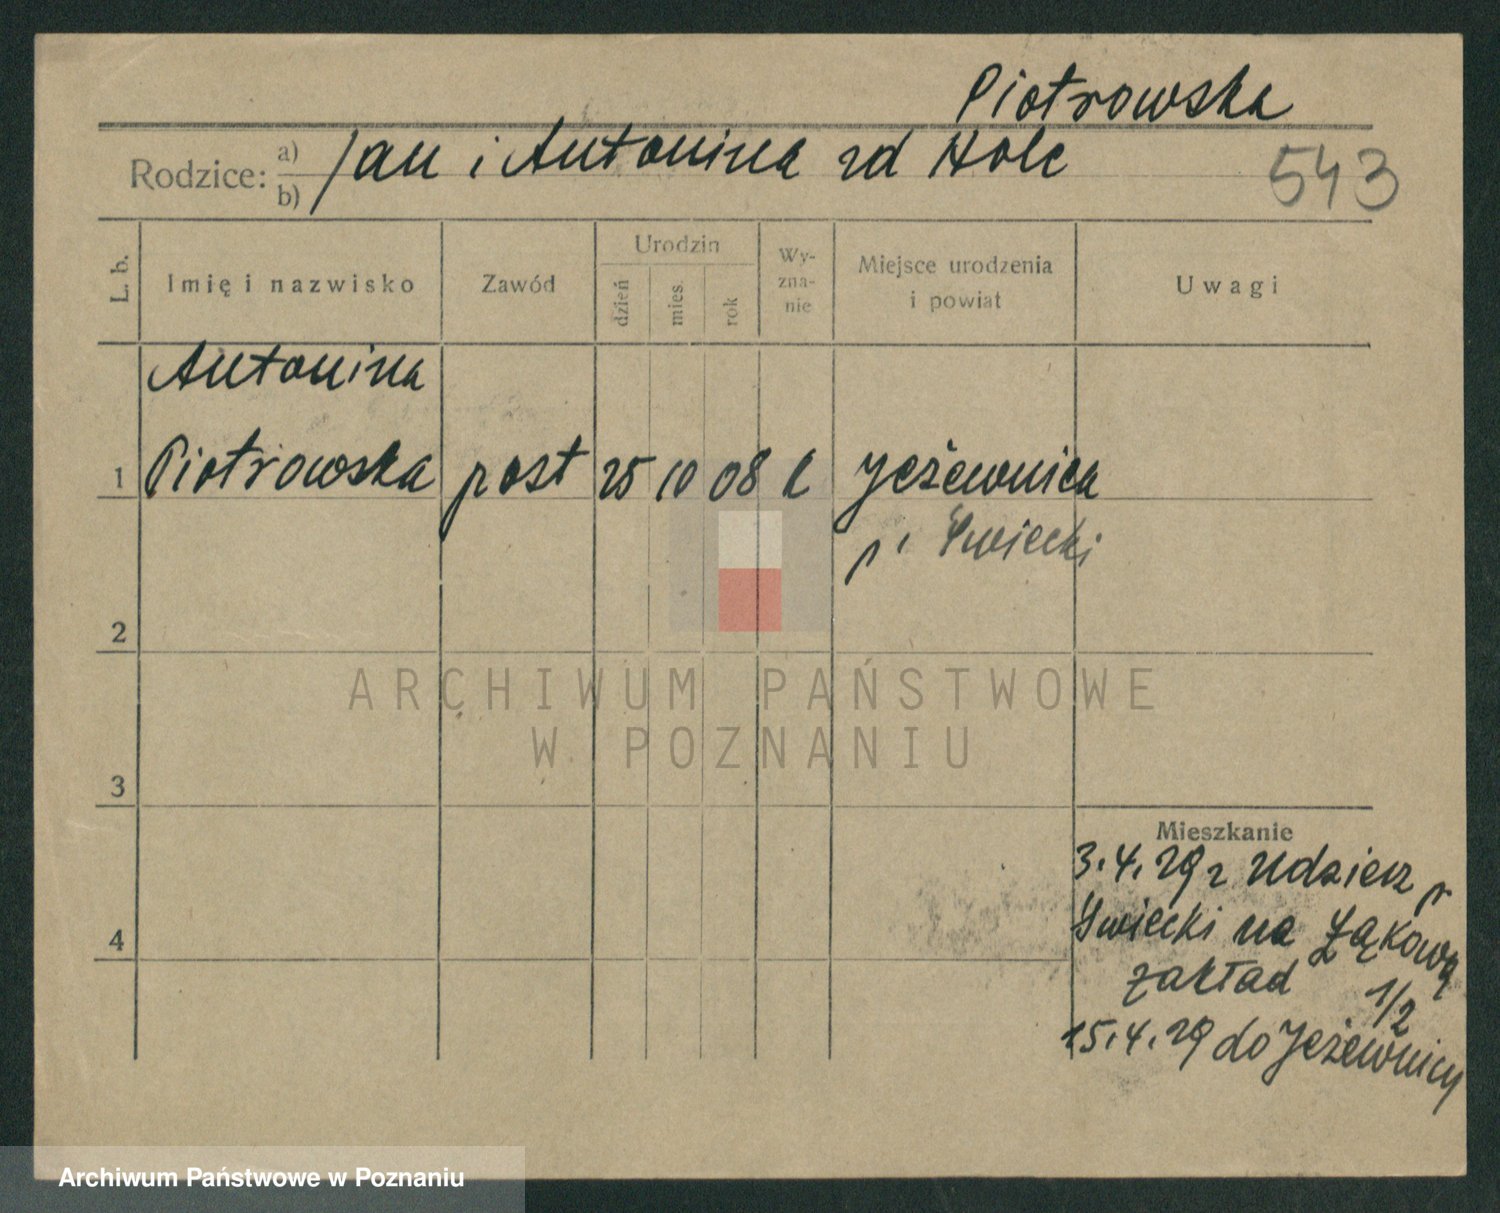 Piotrowska
Rodzice: a) b) Jan i Antonina zd Holc
543
L. b.
Imię i nazwisko
Zawód
Urodzin
dzień
mies.
rok
Wy-
zna-
nie
Miejsce urodzenia
i powiat
Uwagi
Antonina
1 Piotrowska post 25 10 08 k Jeżewnica
p. Świecki
2
3
Mieszkanie
3.4.29 z Udzierz p
Świecki na Łąkową
zakład 1/2
15.4.29 do Jeżewnicy
4
ARCHIWUM PAŃSTWOWE
W POZNANIU
Archiwum Państwowe w Poznaniu